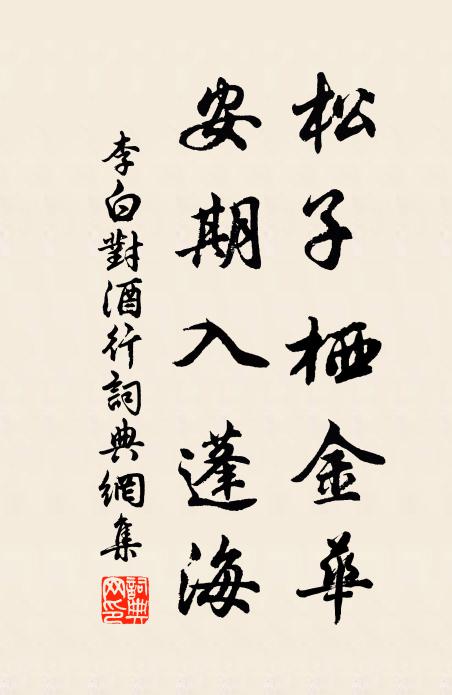 松子栖金華
安期入蓬海
李白對酒行詞典網集
詞典网印